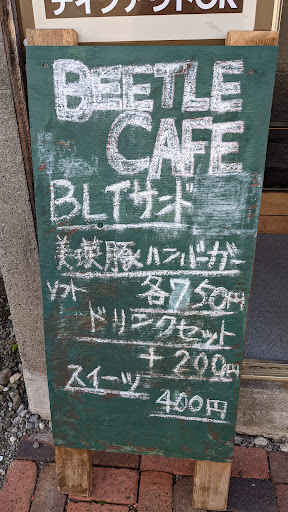 テイクアウトOK
BEETLE
CAFE
BLTサンド
美瑛豚ハンバーガー
各750円
ソフト
ドリンクセット
+200円
スイーツ
400円